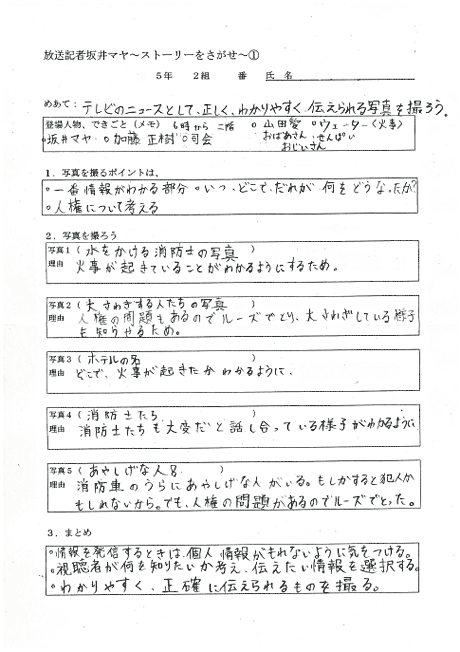 放送記者坂井マヤ～ストーリーをさがせ～①
５年　２組　　番　氏名
めあて：テレビのニュースとして、正しく、わかりやすく、伝えられる写真を撮ろう。
登場人物、できごと（メモ）　6時から 二階　○山田愛　○ウェーター〈火事〉
○坂井マヤ　○加藤 正樹　○司会　おばあさん・せんぱい
おじいさん
１．写真を撮るポイントは、
○一番情報がわかる部分　○いつ、どこで、だれが 何をどうなったか？
○人権について考える
２．写真を撮ろう
写真１（水をかける消防士の写真　）
理由　火事が起きていることがわかるようにするため。
写真２（大さわぎする人たちの写真）
理由　人権の問題もあるのでルーズでとり、大さわぎしている様子
も知らせるため。
写真３（ホテルの名　）
理由　どこで、火事が起きたかわかるように、
写真４（消防士たち　）
理由　消防士たちも大変だと話し合っている様子がわかるように
写真５（あやしげな人　）
理由　消防車のうらにあやしげな人がいる。もしかすると犯人か
もしれないから。でも、人権の問題があるのでルーズでとった。
３．まとめ
○情報を発信するときは、個人情報がもれないように気をつける。
○視聴者が何を知りたいか考え、伝えたい情報を選択する。
○わかりやすく、正確に伝えられるものを撮る。